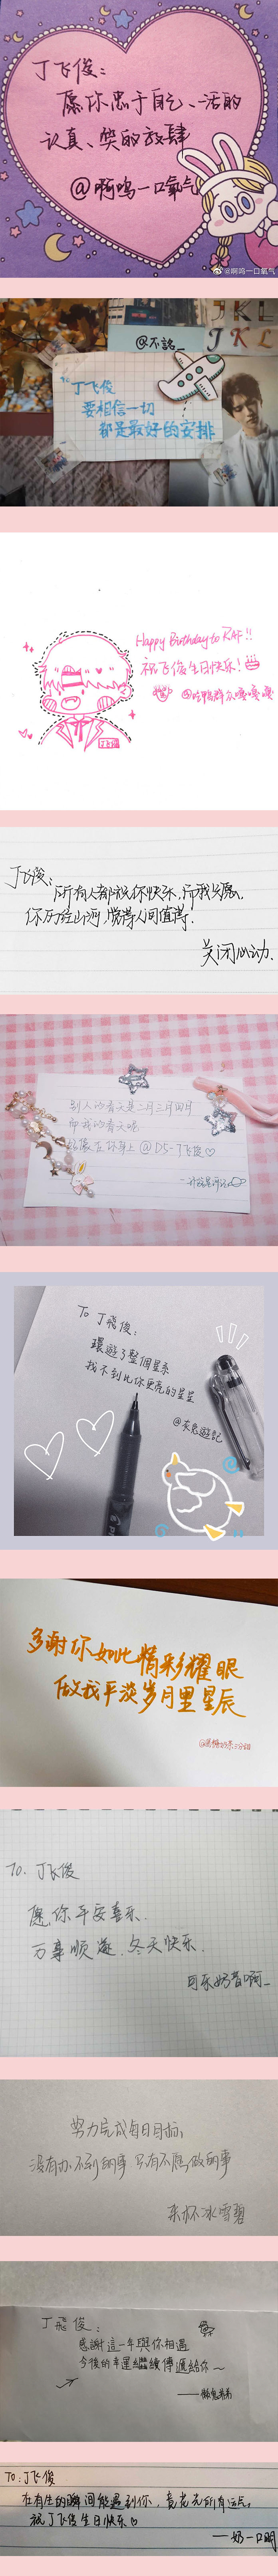 丁飞俊:
愿你忠于自己、活的
认真、笑的放肆
@啊鸣一口氧气
@啊鸣一口氧气
JKL
JKL
@不諮_
"丁飞俊
要相信一切
都是最好的安排
Happy Birthday to KAF!!
祝飞俊生日快乐!
@吃鸭群众嘎嘎嘎
丁飞俊
丁飞俊:
所有人都祝你快乐,而我只愿,
你历经山河,觉得人间值得.
关闭心动.
别人的春天是二月三月四月
而我的春天呢
在你身上 @DS-丁飞俊♡
To 丁飛俊:
環遊了整個星系
找不到比你更亮的星星
@灰兔遊記
多謝你如此精彩耀眼
做我平淡岁月里星辰
TO. 丁飞俊
愿你平安喜乐.
万事顺遂.冬天快乐.
可乐奶昔啊_
努力完成每日目标,
没有办不到的事 只有不愿做的事
来杯冰雪碧
丁飛俊:
感謝這一年與你相遇
今後的幸運繼續傳遞給你~
TO:丁飞俊
在有生的瞬间能遇到你,竟花光所有运气.
祝丁飞俊生日快乐♡
——奶一口明